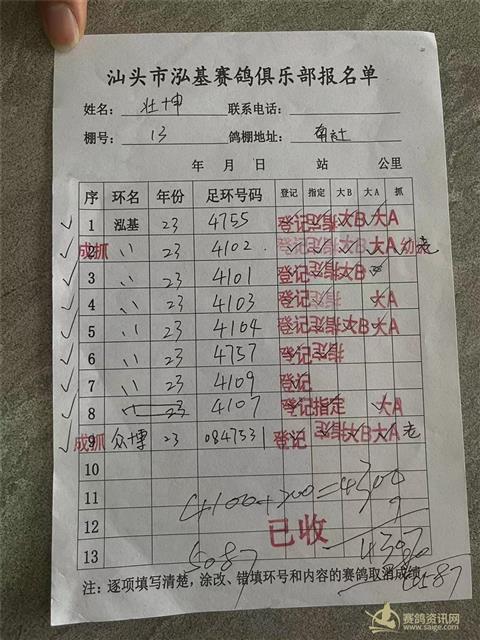 汕头市泓基赛鸽俱乐部报名单
姓名: 壮坤 联系电话:
棚号: 13 鸽棚地址:
年 月 日 站 公里
序 环名 年份 足环号码 登记 指定 大B 大A 抓
1 泓基 23 4755 登记 指定 大B 大A
成抓 2 〃 23 4102 登记 指定 大B 大A 幼
3 〃 23 4101 登记 指定 大B
4 〃 23 4103 登记 指定 大A
5 〃 23 4104 登记 指定 大B 大A
6 〃 23 4757 登记 指定
7 〃 23 4109 登记
8 23 4107 登记 指定 大A
成抓 9 众博 23 0847531 登记 指定 大B 大A
10
11 4100+200=4300
12 已收 9
13 5087
注: 逐项填写清楚, 涂改、错填环号和内容的赛鸽取消成绩
赛鸽资讯网
www.saige.com